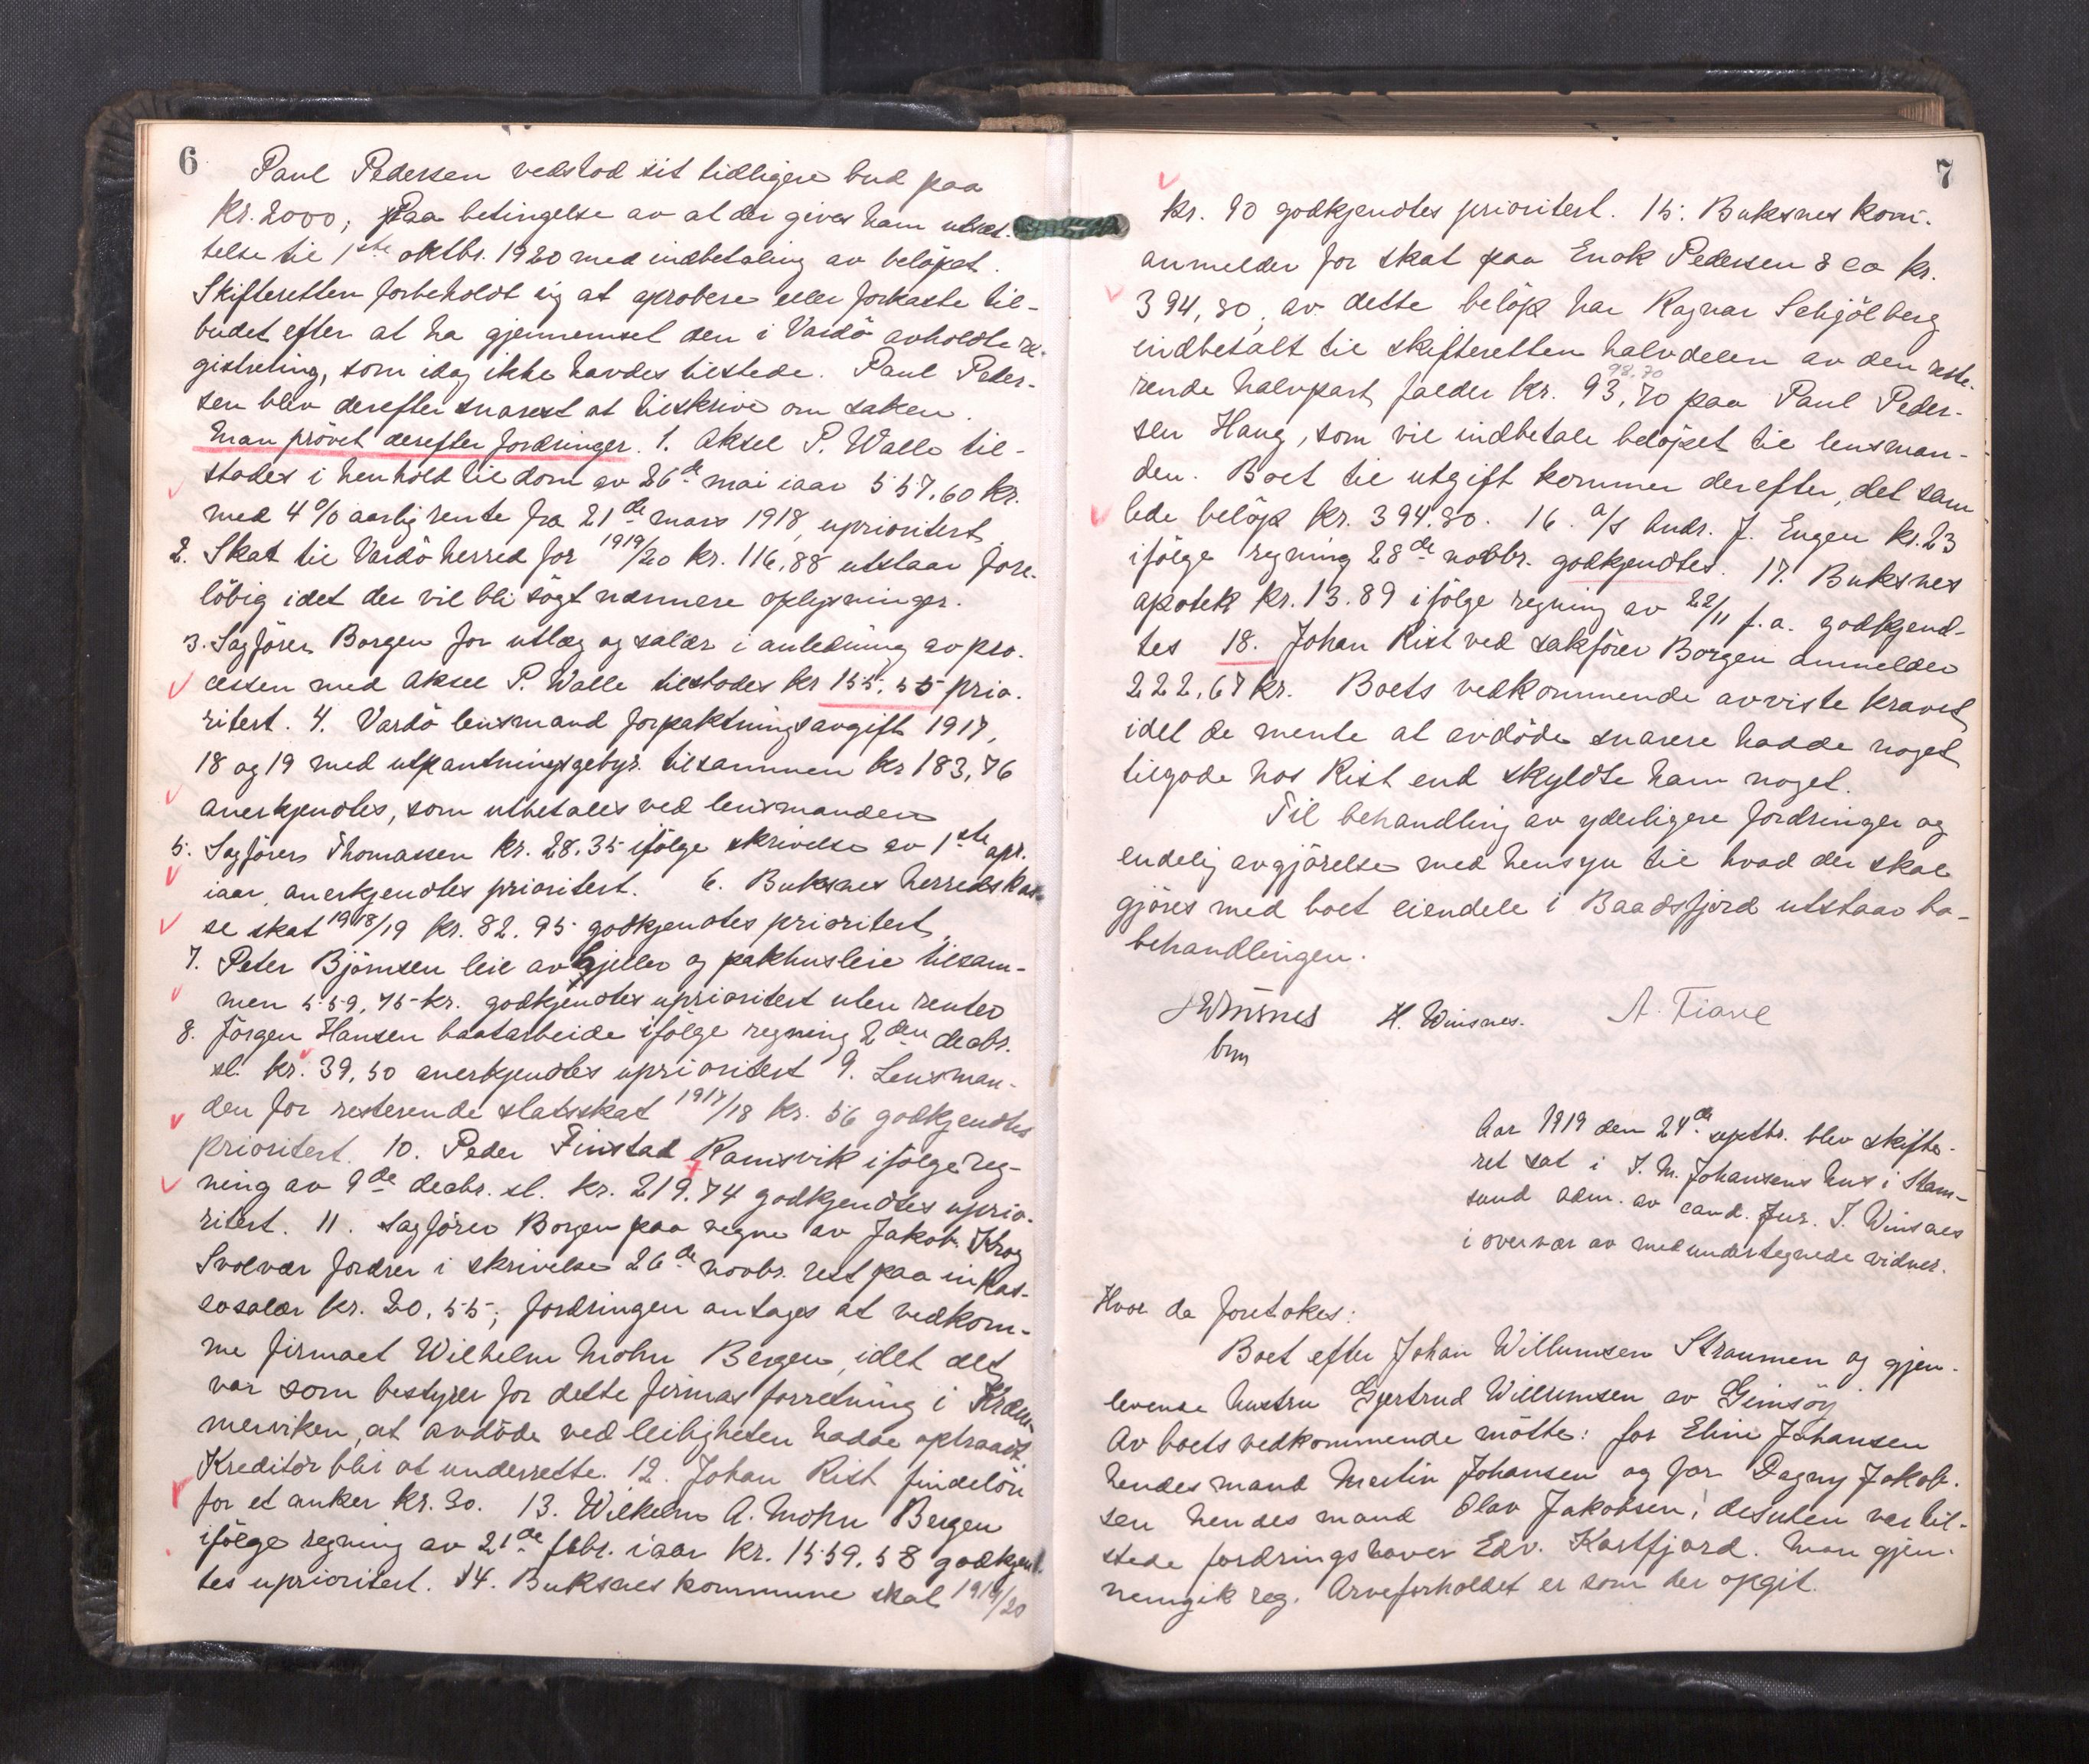 6
Paul Pedersen vedstod sit tidligere bud paa
kr. 2000; paa betingelse av at der gives ham utsæt-
telse til 1ste oktbr. 1920 med indbetaling av beløpet.
Skifteretten forbeholdt sig at aprobere eller forkaste til-
budet efter at ha gjennemset den i Vardö avholdte re-
gistrering, som idag ikke havdes tilstede. Paul Peder-
sen blev derefter snarest at tilskrive om saken.
Man prövet derefter fordringer. 1. Aksel P. Walle til-
stodes i henhold til dom av 26de mai iaar 557,60 kr.
med 4% aarlig rente fra 21de mars 1918, uprioritert
2. Skat til Vardö herred for 1919/20 kr. 116,88 utstaar fore-
löbig idet der vil bli sögt nærmere oplysninger.
3. Sagförer Borgen for utlæg og salær i anledning av pro-
cessen med Aksel P. Walle tilstodes kr 155,55 prio-
ritert. 4. Vardö lensmand forpaktningsavgift 1917,
18 og 19 med utpantningsgebyr tilsammen kr 183,76
anerkjendtes, som utbetales ved lensmanden
5. Sagförer Thomassen kr. 28.35 ifölge skrivelse av 1ste apr.
iaar, anerkjendtes prioritert. 6. Buksnes herredskas-
se skat 1918/19 kr. 82.95 godkjendtes prioritert,
7. Peter Björnsen leie av gjeller og pakhusleie tilsam-
men 559,75 kr. godkjendtes uprioritert uten renter
8. Jörgen Hansen baatarbeide ifölge regning 2den decbr.
sl. kr. 39,50 anerkjendtes uprioritert 9. Lensman-
den for resterende statsskat 1917/18 kr. 56 godkjendtes
prioritert. 10. Peder Finstad Ramsvik ifölge reg-
ning av 9de decbr. sl. kr. 219.74 godkjendtes uprio-
ritert. 11. Sagförer Borgen paa vegne av Jakob Krog
Svolvær fordrer i skrivelse 26de novbr. rest paa inkas-
sosalær kr. 20,55; fordringen antages at vedkom-
me firmaet Wilhelm Mohn Bergen, idet det
var som bestyrer for dette firmas forretning i Kræm-
merviken, at avdöde ved leiligheten hadde optraadt.
Kreditor blir at underrette. 12. Johan Rist findelön
for et anker kr. 20. 13. Wilkelm A. Mohn Bergen
ifölge regning av 21de febr. iaar kr. 1559.58 godkjend-
tes uprioritert. 14. Buksnes kommune skat 1919/20
7
kr. 90 godkjendtes prioritert. 15. Buksnes kom.
anmelder for skat paa Enok Pedersen & co kr.
394,80, av dette belöp har Ragnar Schjölberg
indbetalt til skifteretten halvdelen av den reste-
98.70
rende halvpart falder kr. 93,70 paa Paul Peder-
sen Haug, som vil indbetale belöpet til lensman-
den. Boet til utgift kommer derefter det sam-
lede belöp kr. 394.80. 16. a/s Andr. J. Engen kr. 23
ifölge regning 28de novbr. godkjendtes. 17. Buksnes
apotek kr. 13.89 ifölge regning av 22/11 f.a. godkjend-
tes 18. Johan Rist ved sakförer Borgen anmelder
222,67 kr. Boets vedkommende avviste kravet,
idet de mente at avdöde snarere hadde noget
tilgode hos Rist end skyldte ham noget.
Til behandling av yderligere fordringer og
endelig avgjörelse med hensyn til hvad der skal
gjöres med boet eiendele i Baadsfjord utstaar bo-
behandlingen.
JWinsnes H. Winsnes. A. Tiave
bm
Aar 1919 den 24de septbr. blev skifte-
ret sat i J. M. Johansens hus i Stam-
sund adm. av cand. jur. J. Winsnes
i overvær av medundertegnede vidner.
Hvor da foretokes:
Boet efter Johan Willumsen Straumen og gjen-
levende hustru Gjertrud Willumsen av Gimsöy
Av boets vedkommende mötte: for Eline Johansen
hendes mand Martin Johansen og for Dagny Jakob-
sen hendes mand Olav Jakobsen; desuten var til-
stede fordringshaver Edv. Kartfjord. Man gjen-
nemgik reg. Arveforholdet er som der opgit.